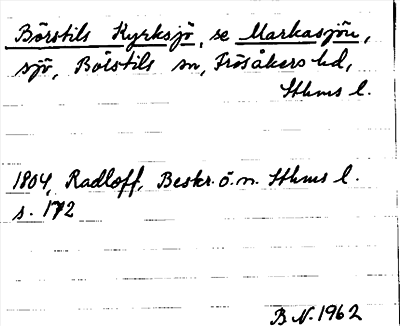 Börstils Kyrksjö, se Markasjön,
sjö, Börstils sn, Frösåkers hd,
Sthms l.
1804, Radloff, Beskr. ö. n. Sthms l.
s. 172
B N. 1962